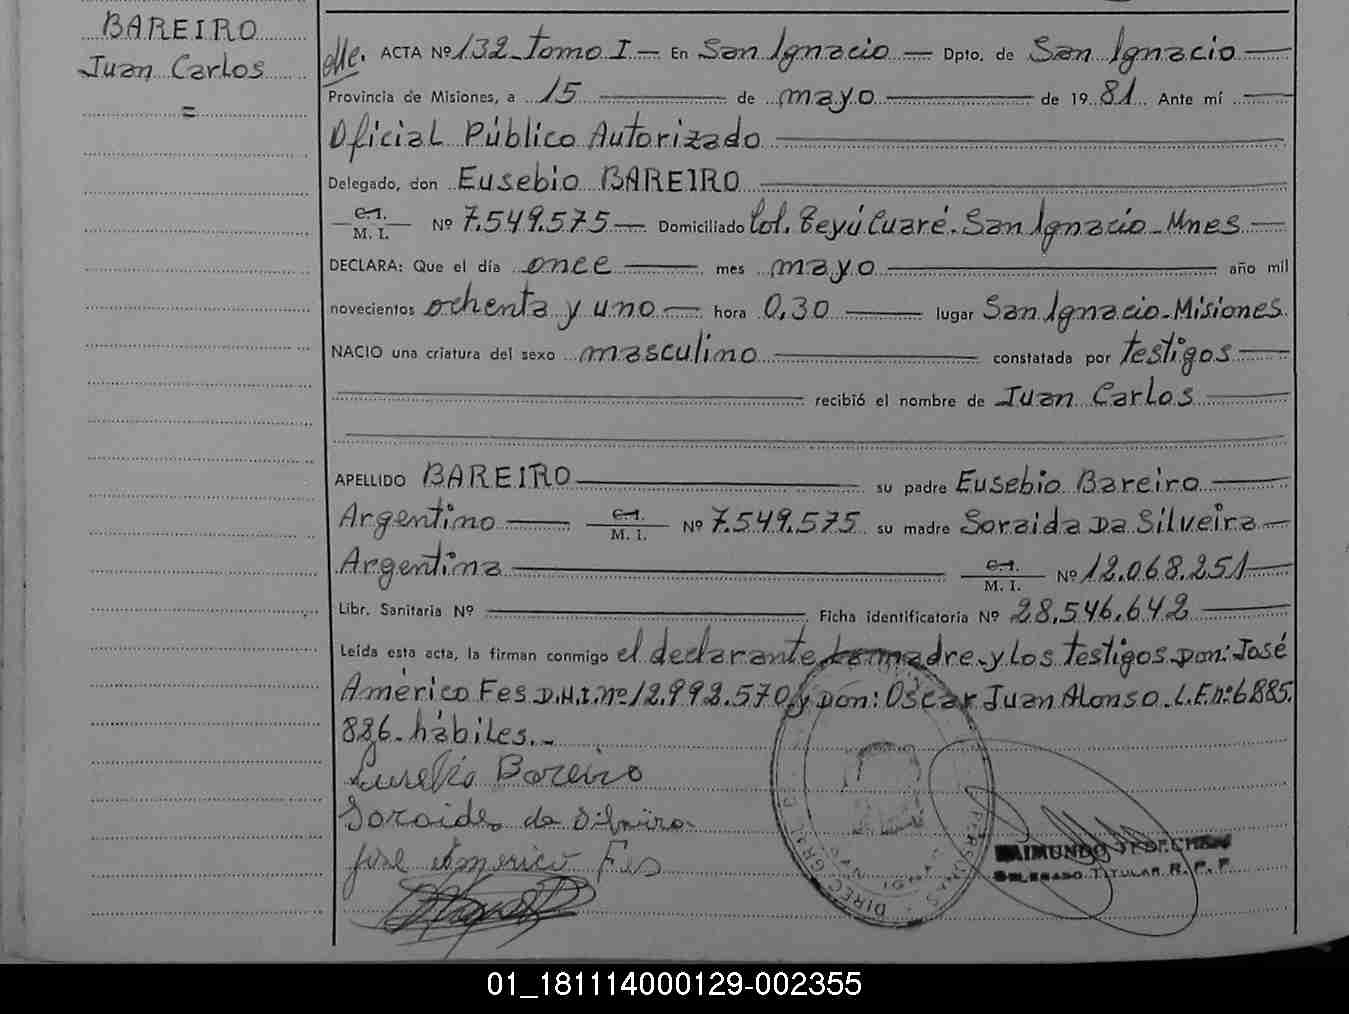 BAREIRO
Juan Carlos
=
ACTA Nº 132 - Tomo I - En San Ignacio - Dpto. de San Ignacio
Provincia de Misiones, a 15 de mayo de 1981. Ante mí
Oficial Público Autorizado
Delegado, don Eusebio BAREIRO
C.I.
M. I. Nº 7.549.575 - Domiciliado Col. Teyú Cuaré. San Ignacio - Mnes
DECLARA: Que el día once mes mayo año mil
novecientos ochenta y uno - hora 0,30 lugar San Ignacio - Misiones
NACIO una criatura del sexo masculino constatada por testigos
recibió el nombre de Juan Carlos
APELLIDO BAREIRO su padre Eusebio Bareiro
Argentino C.I. M. I. Nº 7.549.575 su madre Soraida Da Silveira
Argentina C.I. M. I. Nº 12.068.251
Libr. Sanitaria Nº Ficha identificatoria Nº 28.546.642
Leída esta acta, la firman conmigo el declarante la madre - y los testigos Don: José
Américo Fes D.N.I. nº 12.992.570 y Don: Oscar Juan Alonso - L.E. nº 6.885.
886 - hábiles. -
Eusebio Bareiro
Soraida da Silveira
José Americo Fes
RAIMUNDO
DELEGADO TITULAR R. P. P.
01_181114000129-002355